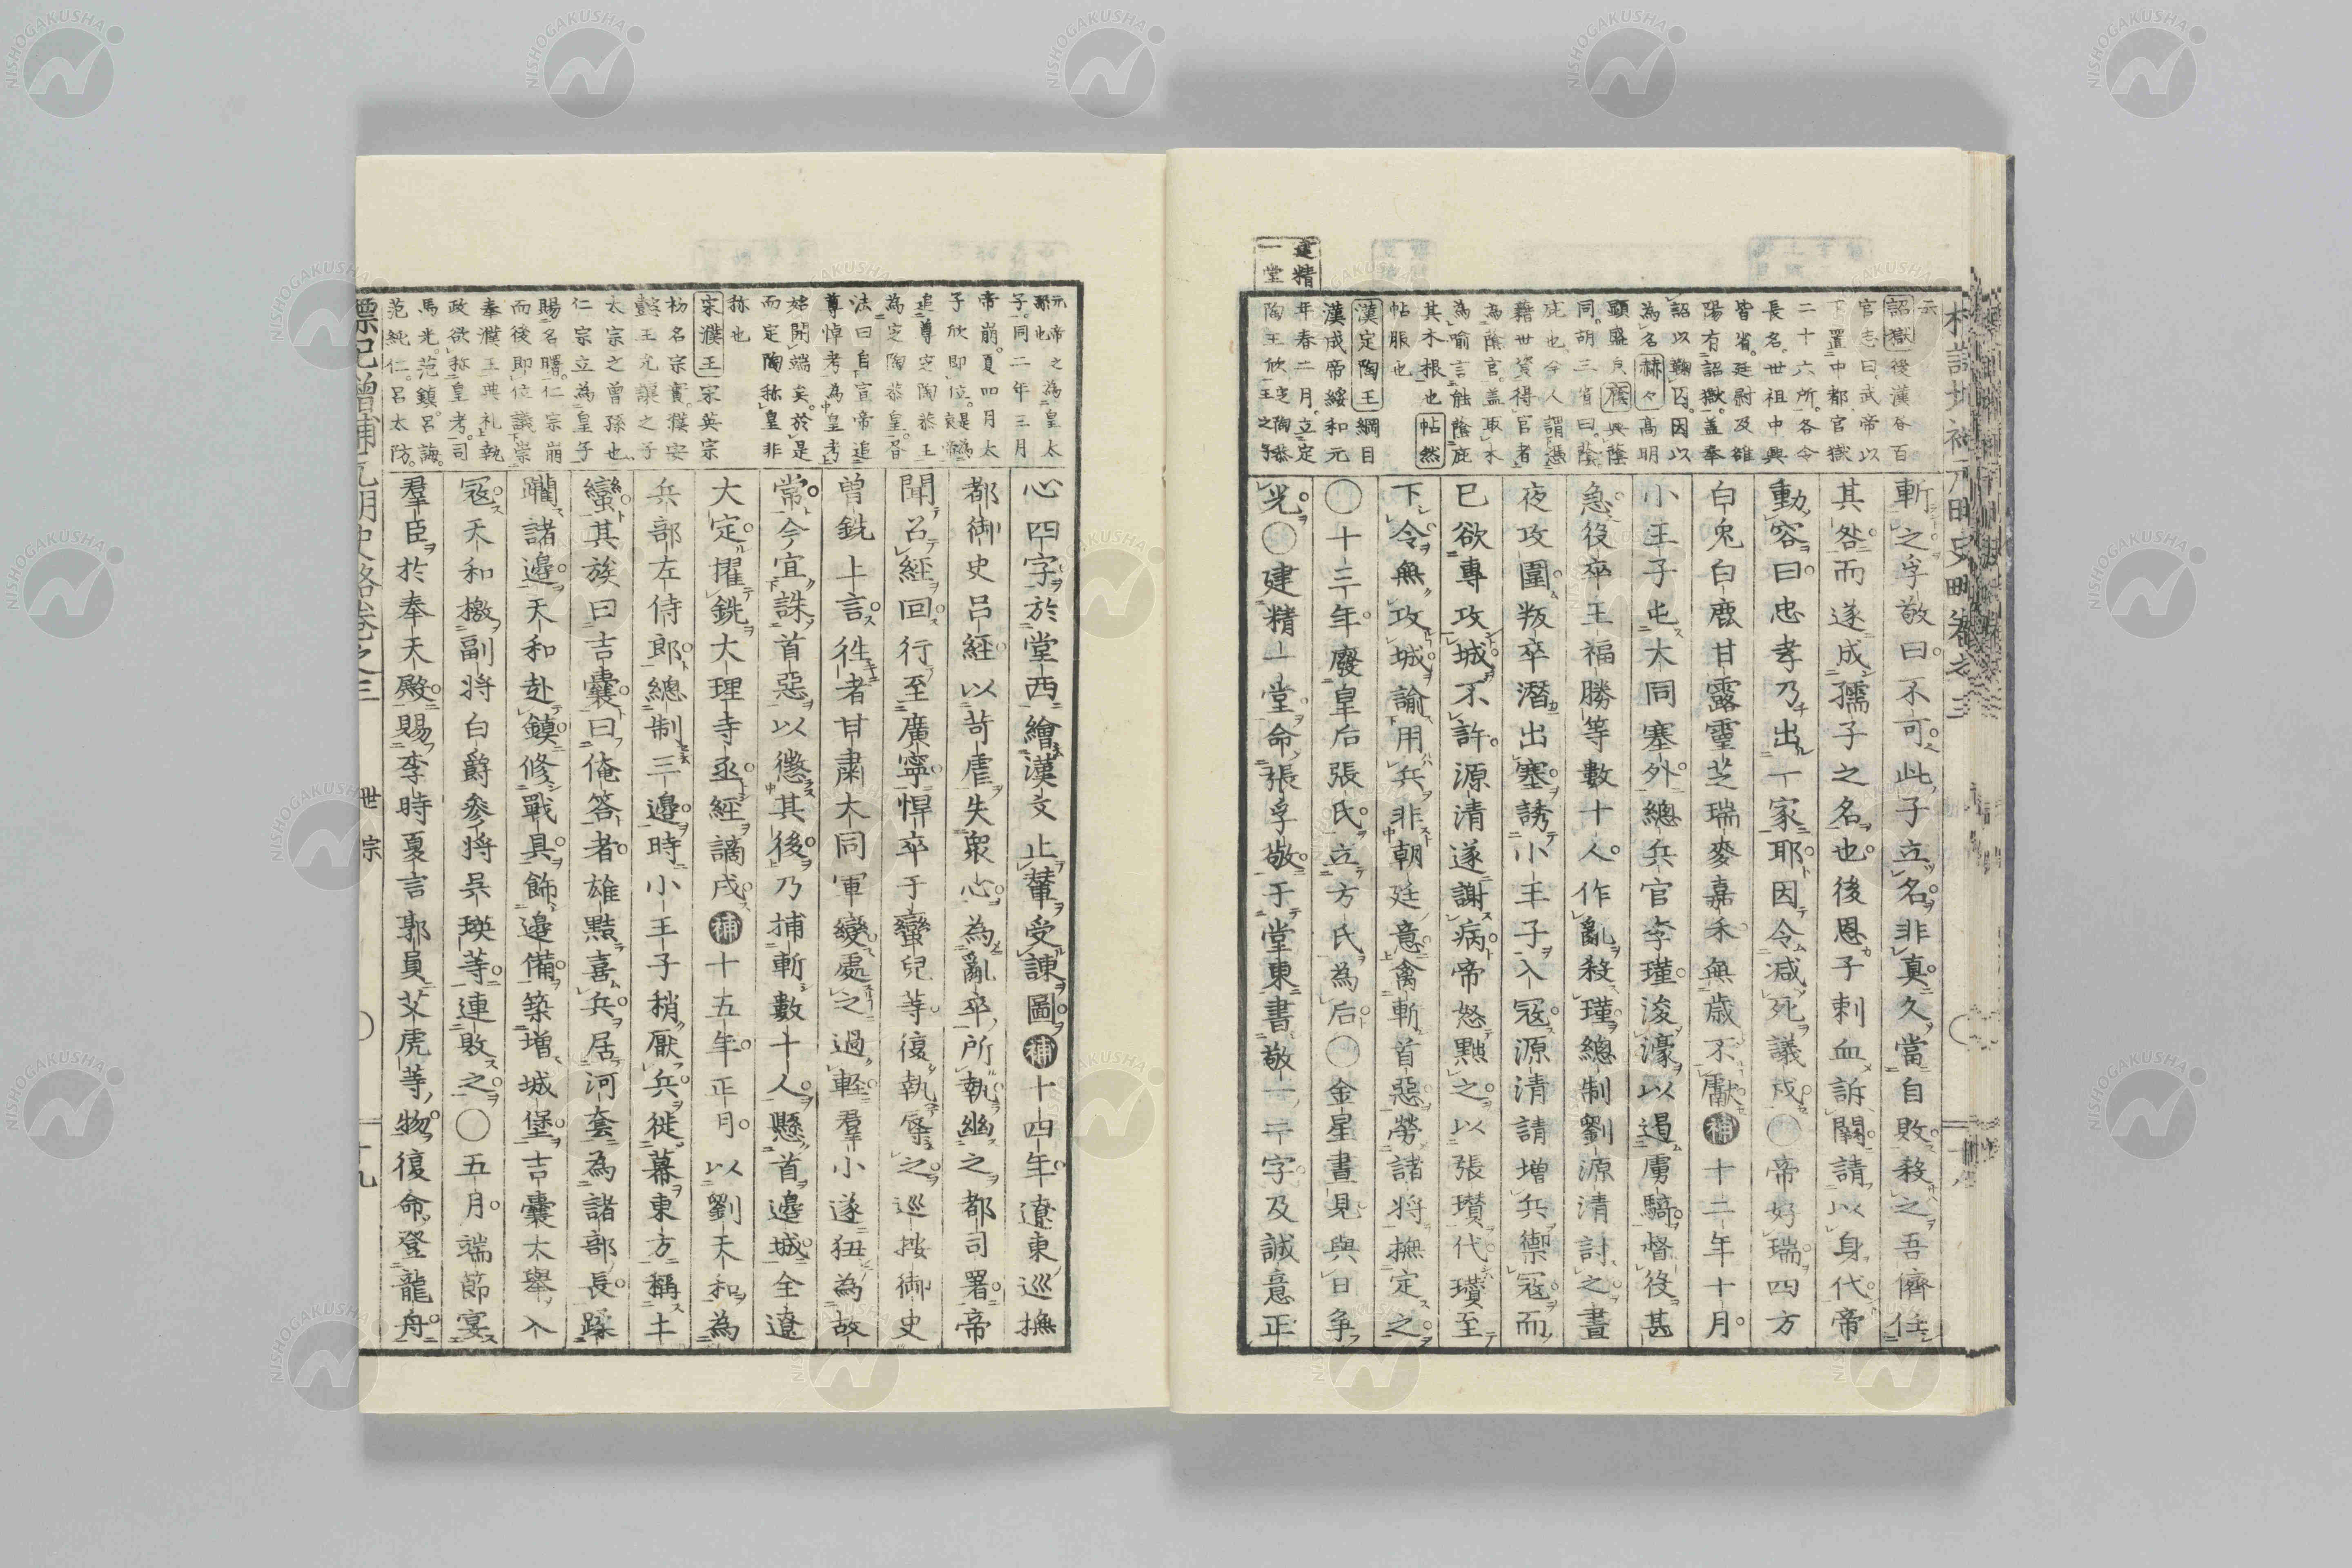 建精
一堂
云
詔獄後漢各百
官志曰武帝以
下置中都官獄
二十六所各令
長名世祖中興
皆省廷尉及雒
陽有詔獄蓋奉
詔以鞠囚因以
為名赫々高明
顕盛貞廕與蔭
同胡三省曰蔭
庇也今人謂憑
藉世資得官者
為蔭官蓋取木
為喩言能蔭庇
其木根也帖然
帖服也
漢定陶王綱目
漢成帝綏和元
年春二月立定
陶王欣定陶恭王之子
斬之孚敬曰不可此子立名非真久當自敗殺之吾儕任
其咎而遂成孺子之名也後恩子刺血訴闕請以身代帝
動容曰忠孝乃出一家耶因令减死議戍〇帝好瑞四方
白兔白鹿甘露靈芝瑞麥嘉禾無歳不獻補十二年十月
小王子屯大同塞外總兵官李瑾浚濠以遏虜騎督役甚
急役卒王福勝等數十人作亂殺瑾總制劉源清討之晝
夜攻圍叛卒潛出塞誘小王子入冦源清請增兵禦冦而
已欲專攻城不許源清遂謝病帝怒黜之以張瓚代瓚至
下令無攻城諭用兵非朝廷意禽斬首惡勞諸将撫定之
〇十三年廢皇后張氏立方氏為后〇金星晝見與日争
光〇建精一堂命張孚敬于堂東書敬一二字及誠意正
元帝之為皇太
子同二年三月
帝崩夏四月太
子欣即位
追尊定陶恭王
為定陶恭皇吕
法曰自宣帝追
尊悼考為皇考
始開端矣於是
而定陶称皇非
称也
宋濮王宋英宗
初名宗實濮安
懿王允讓之子
太宗之曾孫也
仁宗立為皇子
賜名曙仁宗崩
而後即位議崇
奉濮王典礼執
政欲称皇考司
馬光范鎮呂誨
范純仁呂大防
心四字於堂西繪漢文止輦受諌圖補十四年遼東巡撫
都御史呂經以苛虐失衆心為亂卒所執幽之都司署帝
聞召經回行至廣寧悍卒于蠻兒等復執辱之巡按御史
曽銑上言徃者甘肅大同軍變處之過輕羣小遂狃為故
常今宜誅首惡以懲其後乃捕斬數十人懸首邉城全遼
大定擢銑大理寺丞經謫戍補十五年正月以劉天和為
兵部左侍郎總制三邉時小王子稍厭兵徙幕東方稱土
蠻其族曰吉囊曰俺答者雄黠喜兵居河套為諸部長蹂
躪諸邉天和赴鎮修戰具飾邉備築增城堡吉囊大舉入
冦天和檄副将白爵參将吳瑛等連敗之〇五月端節宴
羣臣於奉天殿賜李時夏言郭員艾虎等物復命登龍舟
標記增補元明史略巻之三　世宗　〇　十九